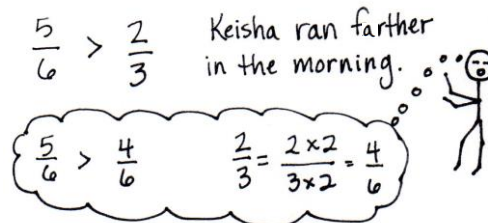 5/6 > 2/3 Keisha ran farther
in the morning.
5/6 > 4/6 2/3 = 2×2/3×2 = 4/6